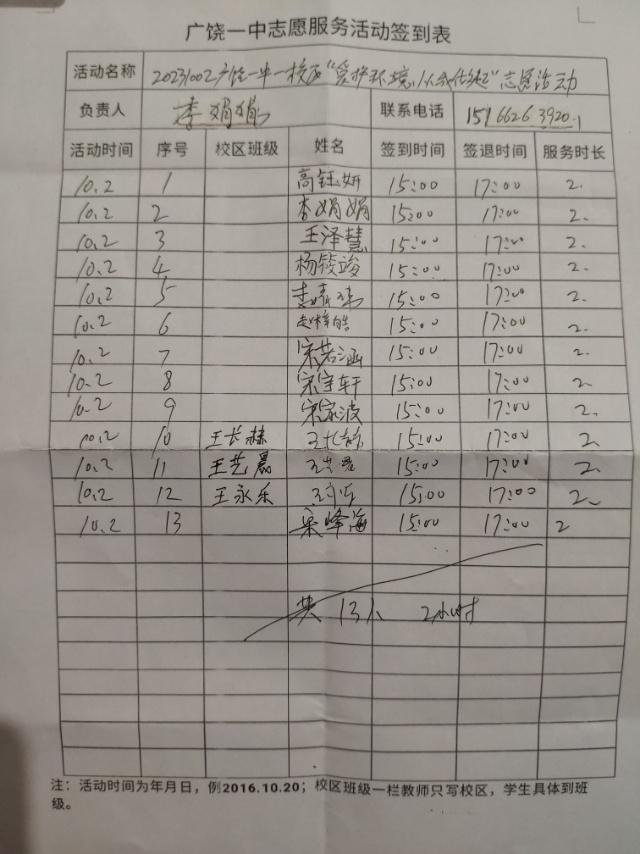 广饶一中志愿服务活动签到表
活动名称 20231002广饶一中一校区"爱护环境,从我做起"志愿活动
负责人 李娟娟 联系电话 15166263920
活动时间 序号 校区班级 姓名 签到时间 签退时间 服务时长
10.2 1 高钰妍 15:00 17:00 2.
10.2 2 李娟娟 15:00 17:00 2.
10.2 3 王泽慧 15:00 17:00 2.
10.2 4 杨筱竣 15:00 17:00 2.
10.2 5 15:00 17:00 2.
10.2 6 赵梓皓 15:00 17:00 2.
10.2 7 宋若涵 15:00 17:00 2.
10.2 8 宋宇轩 15:00 17:00 2.
10.2 9 宋家波 15:00 17:00 2.
10.2 10 王长赫 王长赫 15:00 17:00 2.
10.2 11 王艺晨 15:00 17:00 2.
10.2 12 王永乐 15:00 17:00 2.
10.2 13 宋峰海 15:00 17:00 2
共13人 2小时
注：活动时间为年月日，例2016.10.20；校区班级一栏教师只写校区，学生具体到班
级。